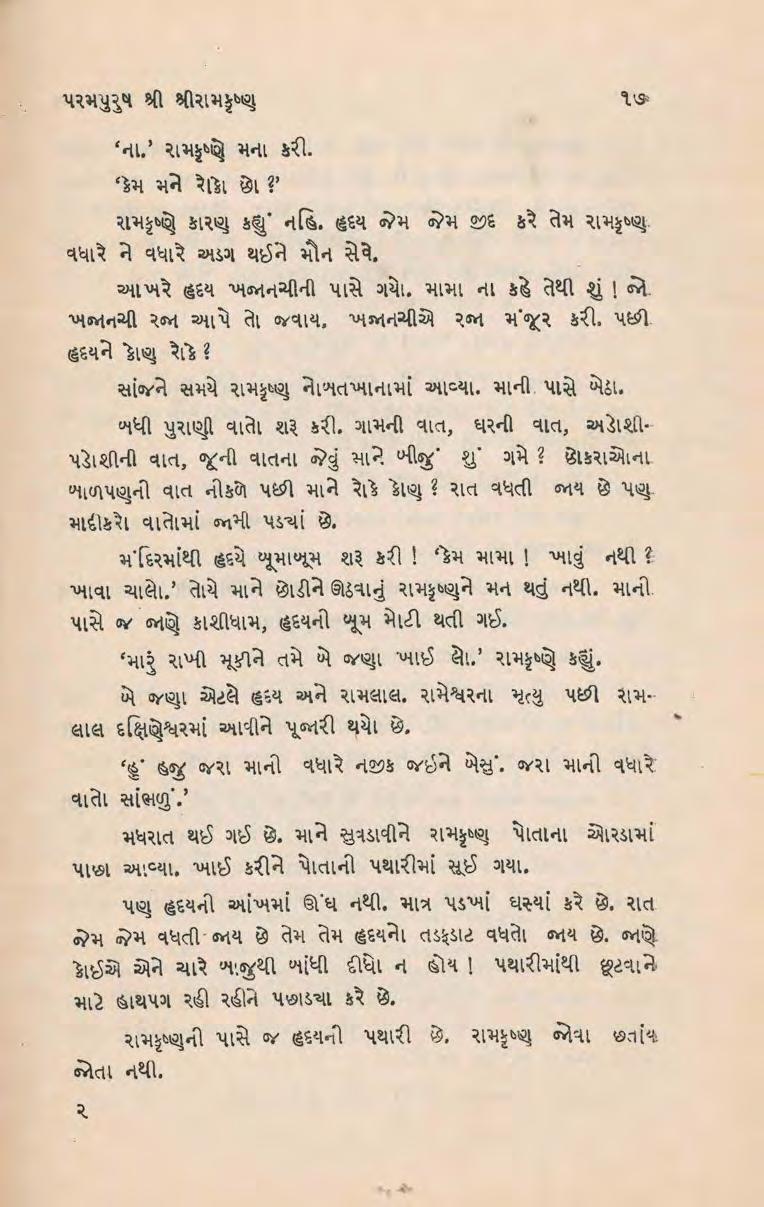 પરમપુરુષ શ્રી શ્રીરામકૃષ્ણ ૧૭
‘ના.’ રામકૃષ્ણે મના કરી.
‘કેમ મને રોકો છો ?’
રામકૃષ્ણે કારણ કહ્યું નહિ. હૃદય જેમ જેમ જીદ કરે તેમ રામકૃષ્ણ
વધારે ને વધારે અડગ થઈને મૌન સેવે.
આખરે હૃદય ખજાનચીની પાસે ગયો. મામા ના કહે તેથી શું ! જો
ખજાનચી રજા આપે તો જવાય. ખજાનચીએ રજા મંજૂર કરી. પછી
હૃદયને કોણ રોકે ?
સાંજને સમયે રામકૃષ્ણ નોબતખાનામાં આવ્યા. માની પાસે બેઠા.
બધી પુરાણી વાતો શરૂ કરી. ગામની વાત, ઘરની વાત, અડોશી-
પડોશીની વાત, જૂની વાતના જેવું માને બીજું શું ગમે ? છોકરાઓના
બાળપણની વાત નીકળે પછી માને રોકે કોણ ? રાત વધતી જાય છે પણ
માદીકરો વાતોમાં જામી પડચાં છે.
મંદિરમાંથી હૃદયે બૂમાબૂમ શરૂ કરી ! ‘કેમ મામા ! ખાવું નથી ?
ખાવા ચાલો.’ તોયે માને છોડીને ઊઠવાનું રામકૃષ્ણને મન થતું નથી. માની
પાસે જ જાણે કાશીધામ, હૃદયની બૂમ મોટી થતી ગઈ.
‘મારું રાખી મૂકીને તમે બે જણા ખાઈ લો.’ રામકૃષ્ણે કહ્યું.
બે જણા એટલે હૃદય અને રામલાલ. રામેશ્વરના મૃત્યુ પછી રામ-
લાલ દક્ષિણેશ્વરમાં આવીને પૂજારી થયો છે.
‘હું હજુ જરા માની વધારે નજીક જઈને બેસું. જરા માની વધારે
વાતો સાંભળું.’
મધરાત થઈ ગઈ છે. માને સુવડાવીને રામકૃષ્ણ પોતાના ઓરડામાં
પાછા આવ્યા. ખાઈ કરીને પોતાની પથારીમાં સૂઈ ગયા.
પણ હૃદયની આંખમાં ઊંઘ નથી. માત્ર પડખાં ઘસ્યાં કરે છે. રાત
જેમ જેમ વધતી જાય છે તેમ તેમ હૃદયનો તડફડાટ વધતો જાય છે. જાણે
કોઈએ એને ચારે બાજુથી બાંધી દીધો ન હોય ! પથારીમાંથી છૂટવાને
માટે હાથપગ રહી રહીને પછાડચા કરે છે.
રામકૃષ્ણની પાસે જ હૃદયની પથારી છે. રામકૃષ્ણ જોવા છતાંય
જોતા નથી.
૨